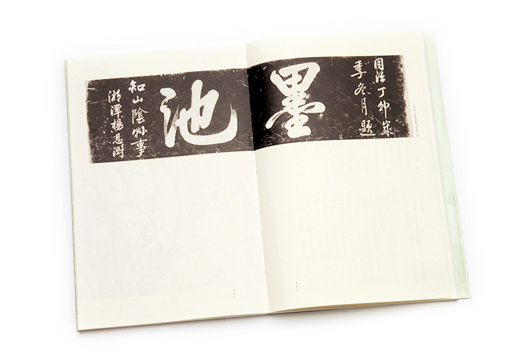 同治丁卯歲
季冬月題
墨池
知山陰縣事
湘潭楊恩澍